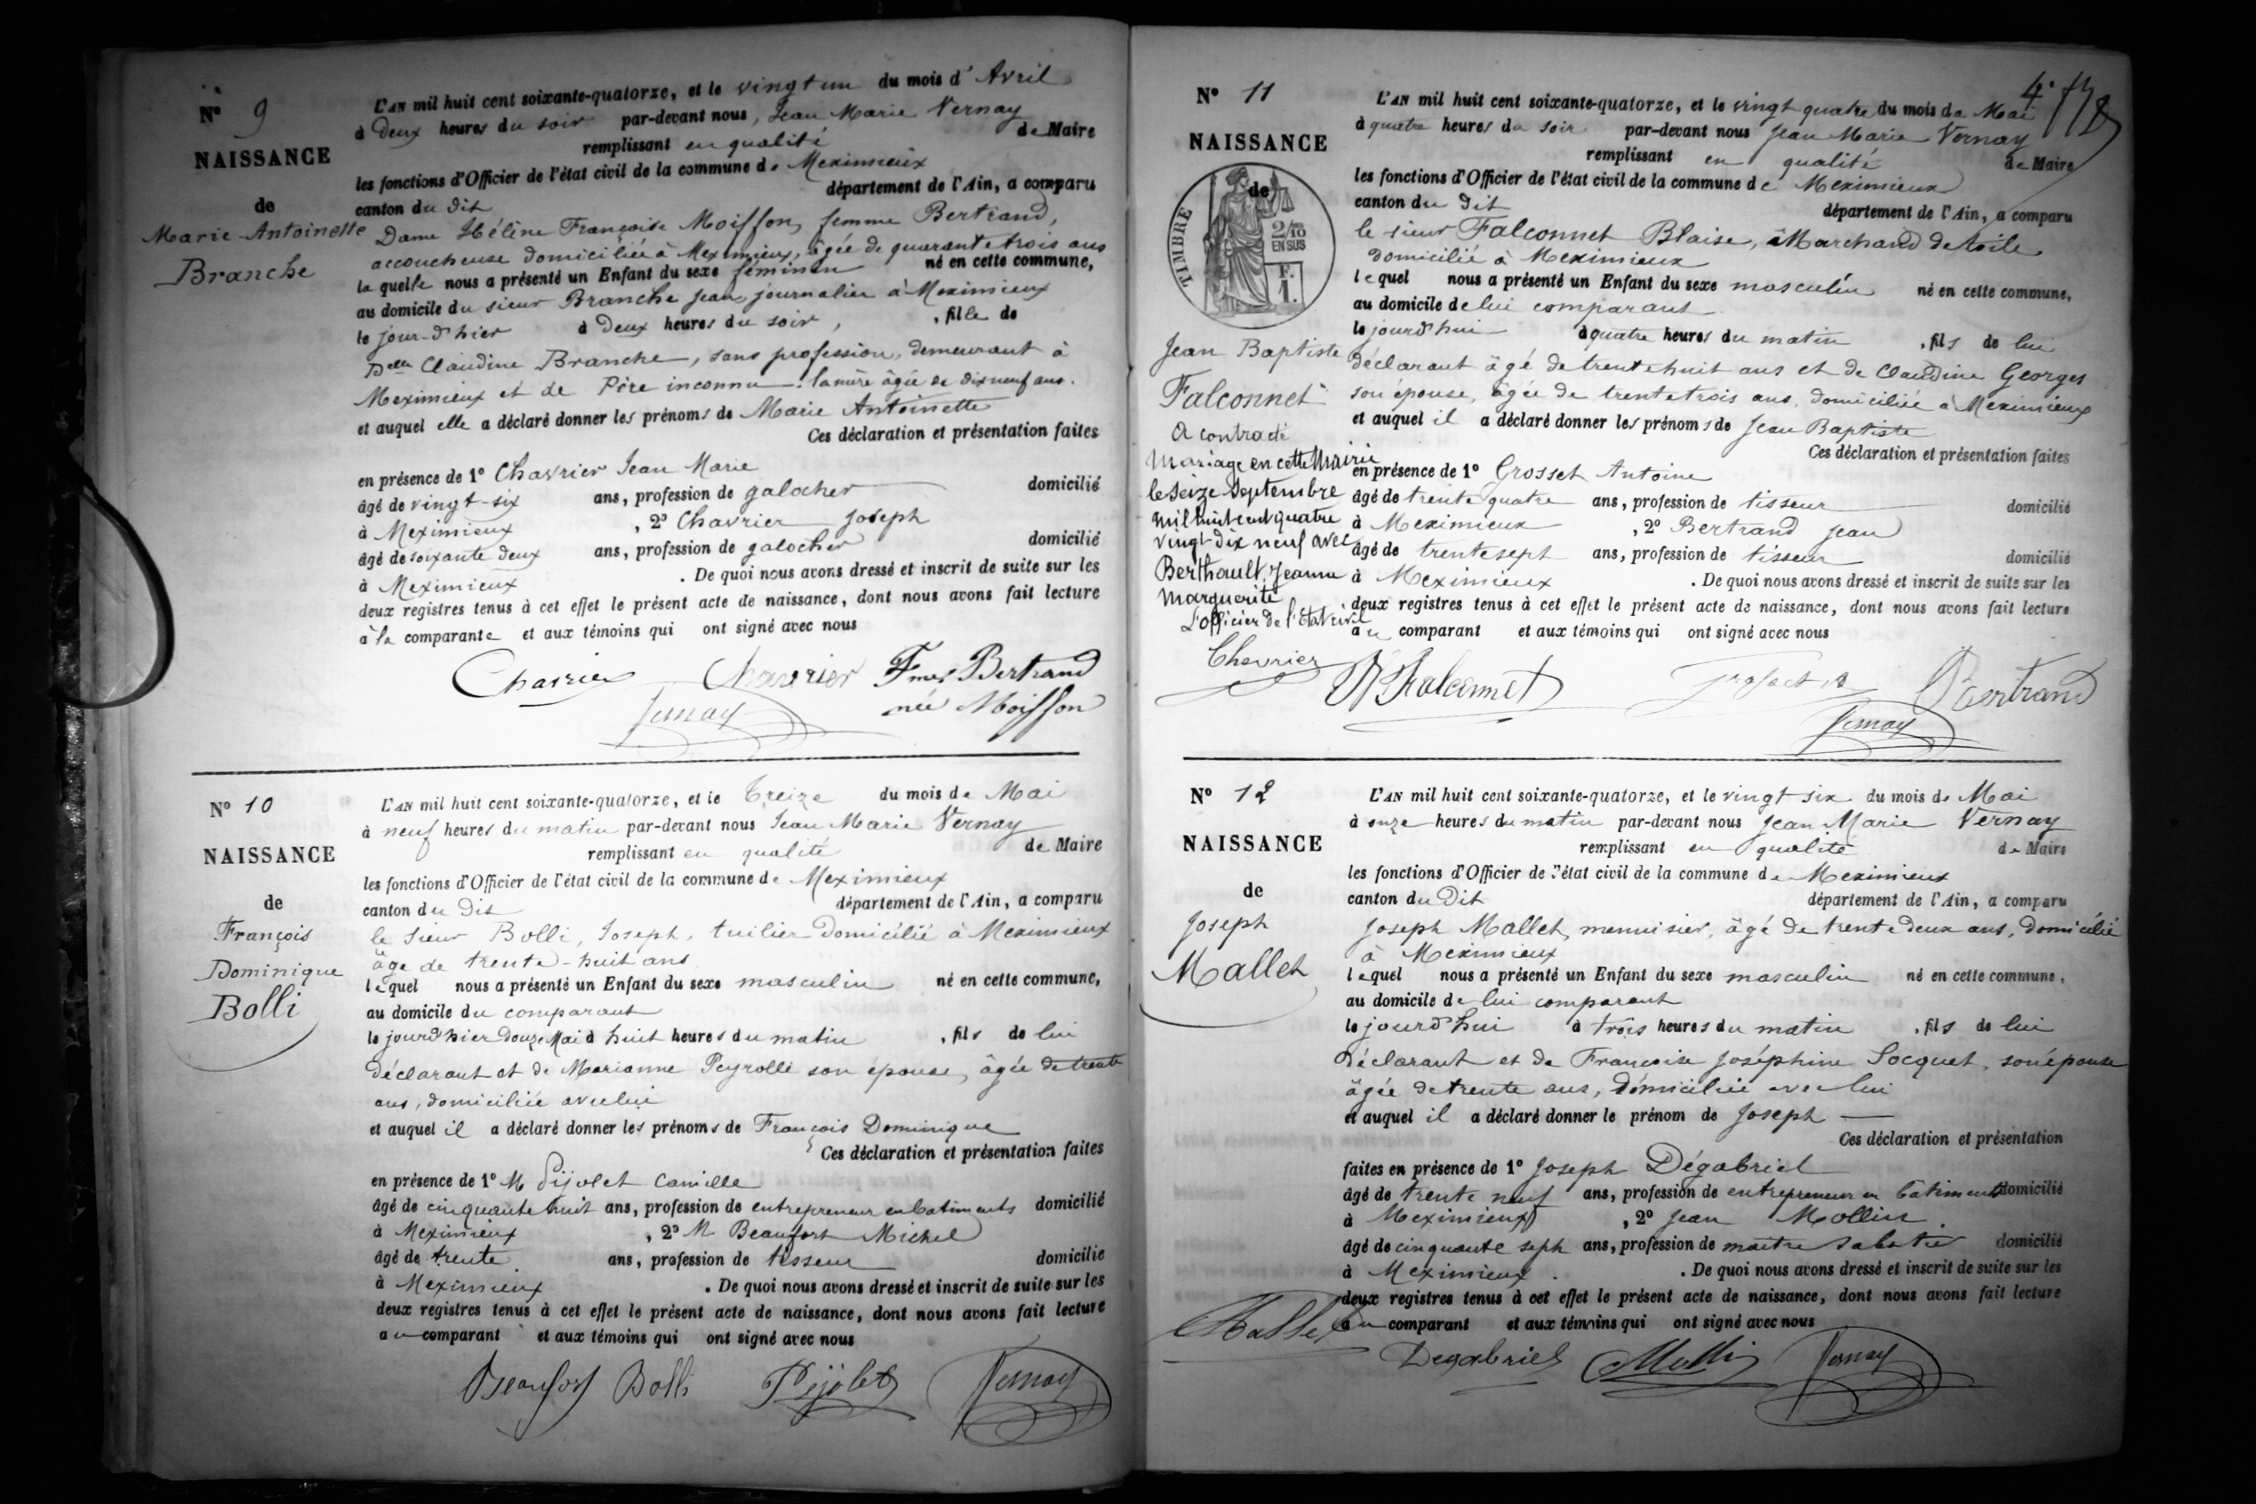 N° 9
NAISSANCE
de
Marie-Antoinette
Branche
L'AN mil huit cent soixante-quatorze, et le vingt un du mois d'Avril
à Deux heures du soir par-devant nous, Jean Marie Vernay
remplissant en qualité de Maire
les fonctions d'Officier de l'état civil de la commune de Meximieux
canton du dit département de l'Ain, a comparu
Dame Hélène Françoise Moisson, femme Bertrand,
accoucheuse domiciliée à Meximieux, âgée de quarante trois ans
laquelle nous a présenté un Enfant du sexe féminin né en cette commune,
au domicile du sieur Branche Jean journalier à Meximieux
le jour d'hier à Deux heures du soir, , fille de
Delle Claudine Branche, sans profession, demeurant à
Meximieux et de Père inconnu. la mère âgée de dix neuf ans.
et auquel elle a déclaré donner les prénoms de Marie Antoinette
Ces déclaration et présentation faites
en présence de 1° Chavrier Jean Marie
âgé de vingt-six ans, profession de galocher domicilié
à Meximieux , 2° Chavrier Joseph
âgé de soixante deux ans, profession de galocher domicilié
à Meximieux . De quoi nous avons dressé et inscrit de suite sur les
deux registres tenus à cet effet le présent acte de naissance, dont nous avons fait lecture
à la comparante et aux témoins qui ont signé avec nous
Chavrier Chavrier Fme Bertrand
Vernay née Moisson
N° 10
NAISSANCE
de
François
Dominique
Bolli
L'AN mil huit cent soixante-quatorze, et le Treize du mois de Mai
à neuf heures du matin par-devant nous Jean Marie Vernay
remplissant en qualité de Maire
les fonctions d'Officier de l'état civil de la commune de Meximieux
canton du Dit département de l'Ain, a comparu
le sieur Bolli, Joseph, tuilier Domicilié à Meximieux
âgé de trente-huit ans
lequel nous a présenté un Enfant du sexe masculin né en cette commune,
au domicile du comparant
le jourd'hier Douze Mai à huit heures du matin , fils de lui
déclarant et de Marianne Peyrolle son épouse, âgée de trente
ans, domiciliée avec lui
et auquel il a déclaré donner les prénoms de François Dominique
Ces déclaration et présentation faites
en présence de 1° M Pijolet Camille
âgé de cinquante huit ans, profession de entrepreneur en batiments domicilié
à Meximieux , 2° M Beaufort Michel
âgé de trente ans, profession de tisseur domicilié
à Meximieux . De quoi nous avons dressé et inscrit de suite sur les
deux registres tenus à cet effet le présent acte de naissance, dont nous avons fait lecture
au comparant et aux témoins qui ont signé avec nous
Beaufort Bolli Pijolet Vernay
4
N° 11
NAISSANCE
de
TIMBRE
2/10
EN SUS
F.
1.
Jean Baptiste
Falconnet
A contracté
Mariage en cette Mairie
le Seize Septembre
mil huit cent quatre
vingt dix neuf avec
Berthault, Jeanne
Marguerite
L'officier de l'Etat civil
Chevrier
L'AN mil huit cent soixante-quatorze, et le vingt quatre du mois de Mai
à quatre heures du soir par-devant nous Jean Marie Vernay
remplissant en qualité de Maire
les fonctions d'Officier de l'état civil de la commune de Meximieux
canton du Dit département de l'Ain, a comparu
le sieur Falconnet Blaise, Marchand de toile
domicilié à Meximieux
lequel nous a présenté un Enfant du sexe masculin né en cette commune,
au domicile de lui comparant
le jourd'hui à quatre heures du matin , fils de lui
déclarant âgé de trente huit ans et de Claudine Georges
son épouse, âgée de trente trois ans, domiciliée à Meximieux
et auquel il a déclaré donner les prénoms de Jean Baptiste
Ces déclaration et présentation faites
en présence de 1° Grosset Antoine
âgé de trente quatre ans, profession de tisseur domicilié
à Meximieux , 2° Bertrand Jean
âgé de trente sept ans, profession de tisseur domicilié
à Meximieux . De quoi nous avons dressé et inscrit de suite sur les
deux registres tenus à cet effet le présent acte de naissance, dont nous avons fait lecture
au comparant et aux témoins qui ont signé avec nous
Falconnet Bertrand
Vernay
N° 12
NAISSANCE
de
Joseph
Mallet
L'AN mil huit cent soixante-quatorze, et le vingt six du mois de Mai
à onze heures du matin par-devant nous Jean Marie Vernay
remplissant en qualité de Maire
les fonctions d'Officier de l'état civil de la commune de Meximieux
canton du Dit département de l'Ain, a comparu
Joseph Mallet, menuisier, âgé de trente deux ans, Domicilié
à Meximieux
lequel nous a présenté un Enfant du sexe masculin né en cette commune,
au domicile de lui comparant
le jourd'hui à trois heures du matin , fils de lui
déclarant et de Françoise Joséphine Socquet, son épouse
âgée de trente ans, Domiciliée avec lui
et auquel il a déclaré donner le prénom de Joseph
Ces déclaration et présentation
faites en présence de 1° Joseph Dégabriel
âgé de trente neuf ans, profession de entrepreneur en bâtiments domicilié
à Meximieux , 2° Jean Mollin
âgé de cinquante sept ans, profession de maître sabotier domicilié
à Meximieux . De quoi nous avons dressé et inscrit de suite sur les
deux registres tenus à cet effet le présent acte de naissance, dont nous avons fait lecture
au comparant et aux témoins qui ont signé avec nous
Mallet Degabriel Vernay